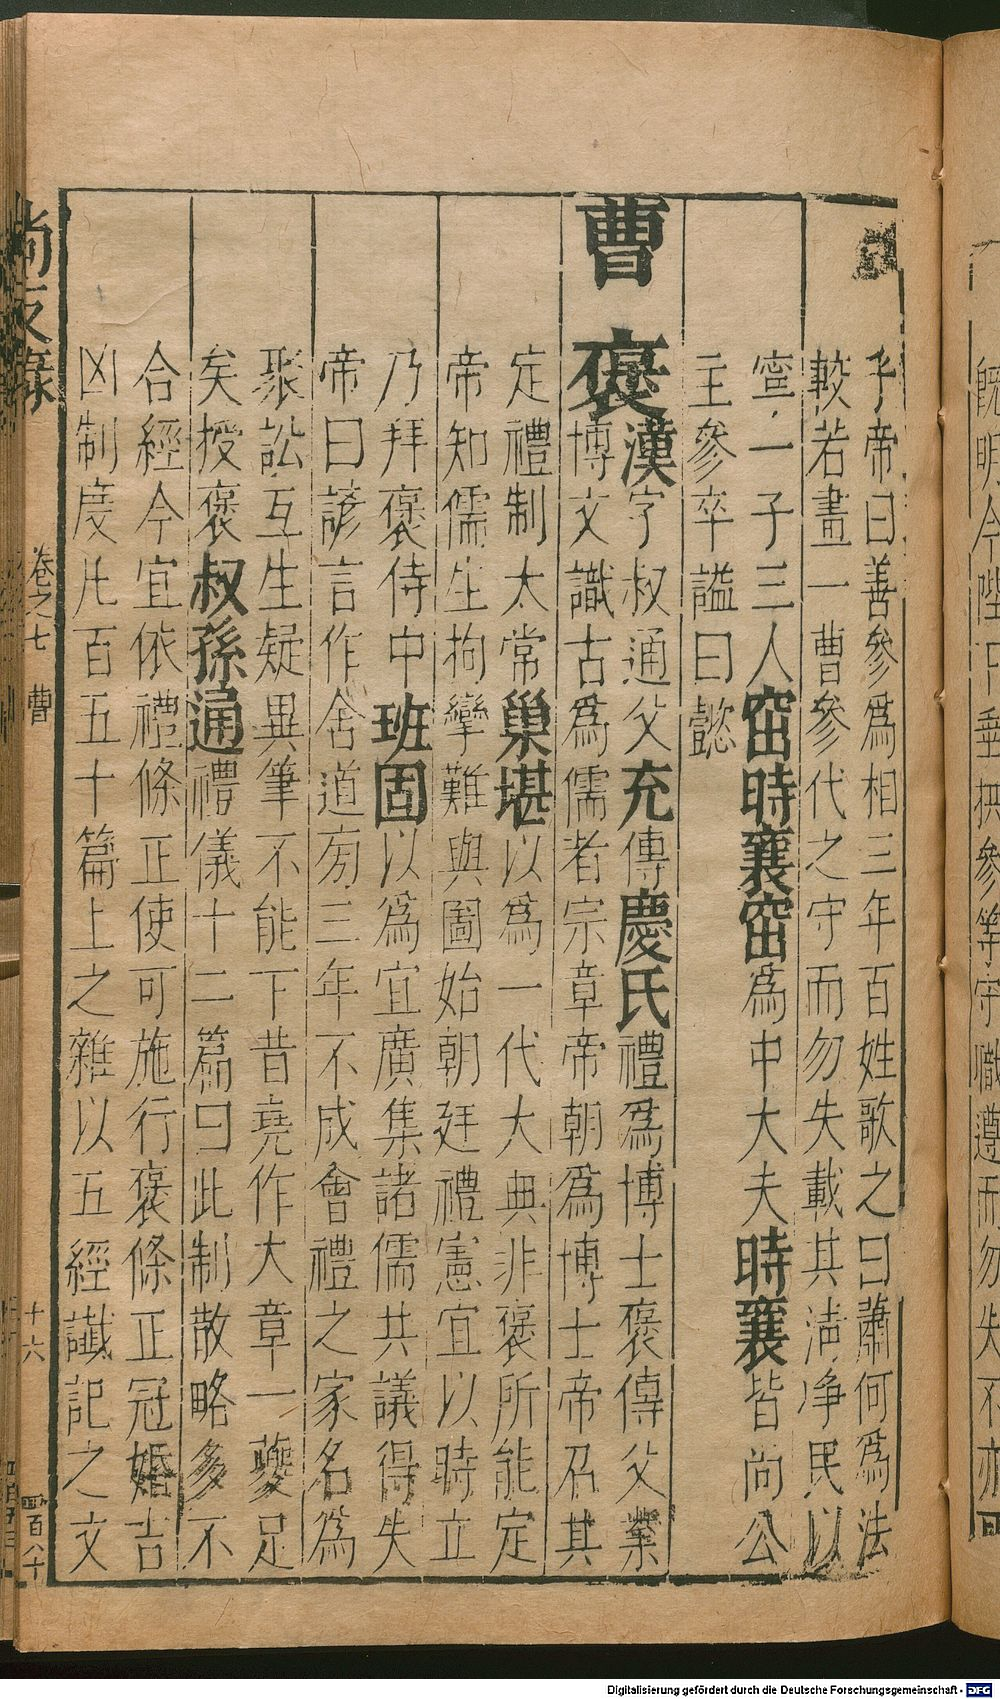 乎帝曰善參為相三年百姓歌之曰蕭何為法
較若畫一曹參代之守而勿失載其清净民以
寍一子三人窋時襄窋為中大夫時襄皆尚公
主參卒謚曰懿
曹褒漢字叔通父充傳慶氏禮為博士褒傳父業
博文識古為儒者宗章帝朝為博士帝召其
定禮制太常巢堪以為一代大典非褒所能定
帝知儒生拘攣難與圖始朝廷禮憲宜以時立
乃拜褒侍中班固以為宜廣集諸儒共議得失
帝曰諺言作舍道旁三年不成會禮之家名為
聚訟互生疑異筆不能下昔堯作大章一夔足
矣授褒叔孫通禮儀十二篇曰此制散略多不
合經今宜依禮條正使可施行褒條正冠婚吉
凶制度凡百五十篇上之雜以五經讖記之文
尚友錄 卷之七 曹 十六 百八十
旣明今陛下垂拱參等守職遵而勿失不亦可
Digitalisierung gefördert durch die Deutsche Forschungsgemeinschaft - DFG